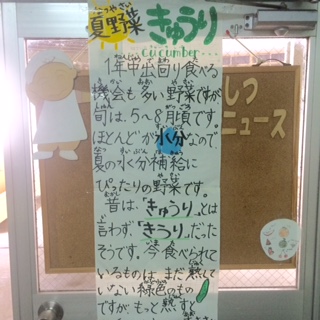 夏野菜 きゅうり
cucumber...
1年中出回り食べる
機会も多い野菜ですが
旬は、5〜8月頃です。
ほとんどが水分なので
夏の水分補給に
ぴったりの野菜です。
昔は、「きゅうり」とは
言わず、「きうり」だった
そうです。今食べられて
いるものは、まだ熟して
いない緑色のもの
ですが、もっと熟すと
しつ
ニュース